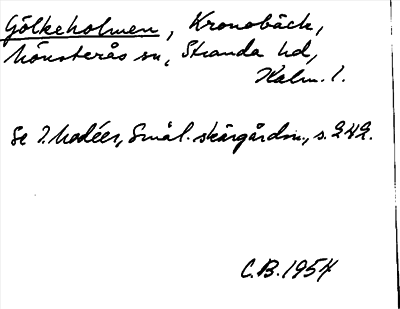 Gölkeholmen, Kronobäck,
Mönsterås sn, Stranda hd,
Kalm. l.
Se I. Modéer, Smål. skärgårdsn., s. 242.
C.B. 1954